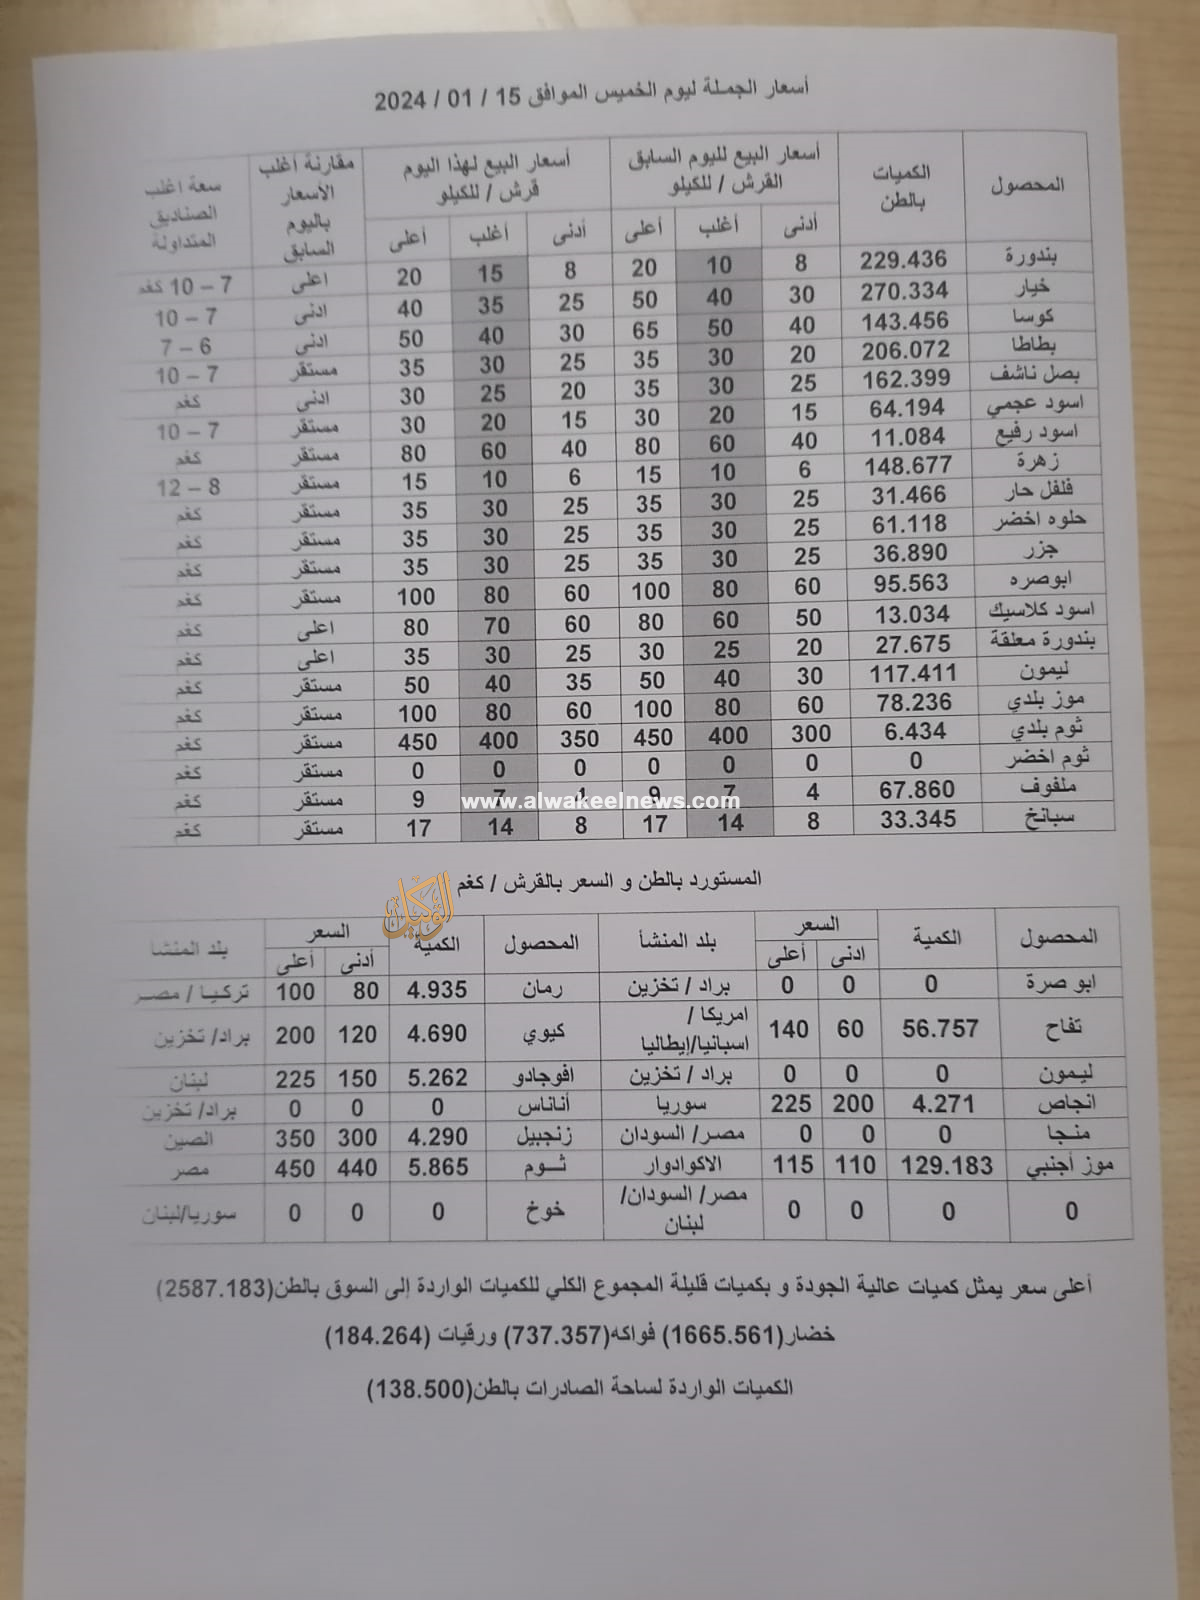 أسعار الجملة ليوم الخميس الموافق 15 / 01 / 2024
المحصول الكميات بالطن أسعار البيع لليوم السابق القرش / للكيلو أسعار البيع لهذا اليوم قرش / للكيلو مقارنة أغلب الأسعار باليوم السابق سعة اغلب الصناديق المتداولة
أدنى أغلب أعلى أدنى أغلب أعلى
بندورة 229.436 8 10 20 8 15 20 اعلى 7 – 10 كغم
خيار 270.334 30 40 50 25 35 40 ادنى 7 – 10
كوسا 143.456 40 50 65 30 40 50 ادنى 6 – 7
بطاطا 206.072 20 30 35 25 30 35 مستقر 7 – 10
بصل ناشف 162.399 25 30 35 20 25 30 ادنى كغم
اسود عجمي 64.194 15 20 30 15 20 30 مستقر 7 – 10
اسود رفيع 11.084 40 60 80 40 60 80 مستقر كغم
زهرة 148.677 6 10 15 6 10 15 مستقر 8 – 12
فلفل حار 31.466 25 30 35 25 30 35 مستقر كغم
حلوه اخضر 61.118 25 30 35 25 30 35 مستقر كغم
جزر 36.890 25 30 35 25 30 35 مستقر كغم
ابوصره 95.563 60 80 100 60 80 100 مستقر كغم
اسود كلاسيك 13.034 50 60 80 60 70 80 اعلى كغم
بندورة معلقة 27.675 20 25 30 25 30 35 اعلى كغم
ليمون 117.411 30 40 50 35 40 50 مستقر كغم
موز بلدي 78.236 60 80 100 60 80 100 مستقر كغم
ثوم بلدي 6.434 300 400 450 350 400 450 مستقر كغم
ثوم اخضر 0 0 0 0 0 0 0 مستقر كغم
ملفوف 67.860 4 7 9 4 7 9 مستقر كغم
www.alwakeelnews.com
سبانخ 33.345 8 14 17 8 14 17 مستقر كغم
المستورد بالطن و السعر بالقرش / كغم
الوكيل
المحصول الكمية السعر بلد المنشأ المحصول الكمية السعر بلد المنشأ
ادنى أعلى أدنى أعلى
ابو صرة 0 0 0 براد / تخزين رمان 4.935 80 100 تركيا / مصر
تفاح 56.757 60 140 امريكا / اسبانيا/إيطاليا كيوي 4.690 120 200 براد/ تخزين
ليمون 0 0 0 براد / تخزين افوجادو 5.262 150 225 لبنان
انجاص 4.271 200 225 سوريا أناناس 0 0 0 براد/ تخزين
منجا 0 0 0 مصر/ السودان زنجبيل 4.290 300 350 الصين
موز أجنبي 129.183 110 115 الاكوادوار ثوم 5.865 440 450 مصر
0 0 0 0 مصر/ السودان/ لبنان خوخ 0 0 0 سوريا/لبنان
أعلى سعر يمثل كميات عالية الجودة و بكميات قليلة المجموع الكلي للكميات الواردة إلى السوق بالطن(2587.183)
خضار(1665.561) فواكه(737.357) ورقيات (184.264)
الكميات الواردة لساحة الصادرات بالطن(138.500)